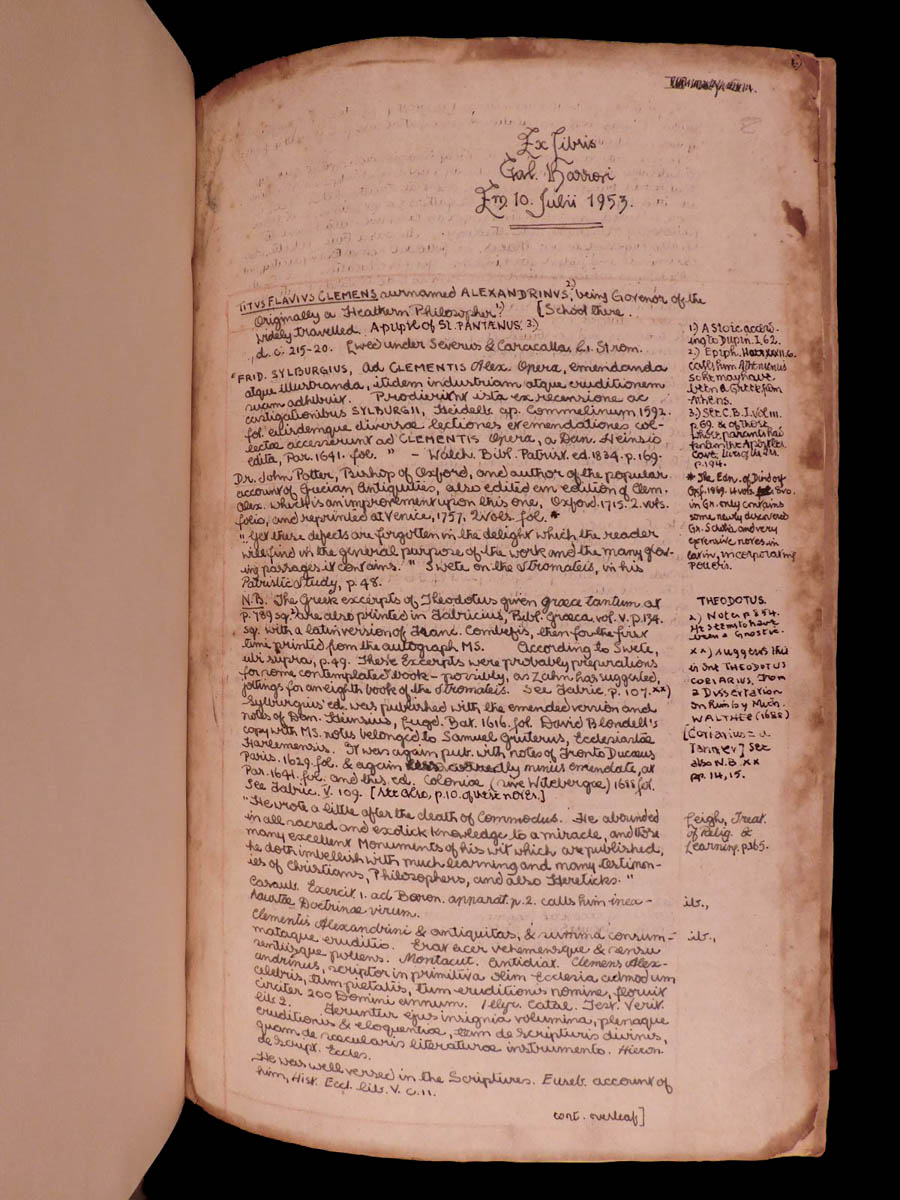 Ex Libris
Em 10. Julii 1953.
TITVS FLAVIVS CLEMENS surnamed ALEXANDRINVS,²⁾ being Govenor of the
Originally a Heathern Philosopher¹⁾. [School there.
widely travelled. A pupil of St. PANTÆNUS. 3.)
d. c. 215-20. Lived under Severus & Caracalla, L. 1. Strom.
"FRID. SYLBURGIUS, ad CLEMENTIS Alex. Opera, emendanda
atque illustranda, itidem industriam atque eruditionem
suam adhibuit. Prodierunt ista ex recensione ac
castigationibus SYLBURGII, Heidelb. ap. Commelinum 1592.
fol. eisdemque diversae lectiones et emendationes col-
lectae accesserunt ad CLEMENTIS Opera, a Dan. Heinsio
edita, Par. 1641. fol. " - Walch. Bibl. Patrist. ed. 1834. p. 169.
Dr. John Potter, Bishop of Oxford, and author of the popular
account of Grecian Antiquities, also edited an edition of Clem.
Alex. which is an improvement upon this one, Oxford. 1715. 2. vols.
folio, and reprinted at Venice, 1757, 2 vols. fol. *
"Yet these defects are forgotten in the delight which the reader
will find in the general purpose of the work and the many glow-
ing passages it contains." Swete on the Stromateis, in his
Patristic Study, p. 48.
N.B. The Greek excerpts of Theodotus given græce tantum at
p. 789 sq. are also printed in Fabricius, Bibl. Græca, vol. V. p. 134.
sq. with a latin version of Franc. Combefis, then for the first
time printed from the autograph MS. According to Swete,
ubi supra, p. 49. These Excerpts were probably preparations
for some contemplated book - possibly, as Zahn has suggested,
jottings for an eighth book of the Stromateis. See Fabric. p. 107. xx)
Sylburgius' ed. was published with the emended version and
notes of Dan. Heinsius, Lugd. Bat. 1616. fol. David Blondell's
copy with MS. notes belonged to Samuel Gruterus, Ecclesiastæ
Harlemensis. It was again pub. with notes of Fronto Ducæus
Paris. 1629. fol. & again minus emendate, at
Par. 1641. fol. and this ed. Coloniæ (sive Witebergæ) 1688 fol.
See Fabric. V. 109. [see also, p. 10. of these notes.]
"He wrote a little after the death of Commodus. He abounded
in all sacred and exotick knowledge to a miracle, and those
many excellent Monuments of his wit which are published,
he doth imbellish with much learning and many testimon-
ies of Christians, Philosophers, and also Hereticks."
Casaub. Exercit. 1. ad Baron. apparat. p. 2. calls him inex-
haustæ Doctrinae virum.
Clementis Alexandrini & antiquitas, & summa consum-
mataque eruditio. Erat acer vehemensque & sensu
sentiisque pollens. Montacut. Antidiat. Clemens Alex-
andrinus, scriptor in primitiva olim Ecclesia admodum
celebris, tum pietatis, tum eruditionis nomine, floruit
circiter 200 Domini annum. Illyr. Catal. Test. Verit.
lib. 2. Feruntur ejus insignia volumina, plenaque
eruditionis & eloquentiæ, tam de Scripturis divinis,
quam de sæcularis literaturæ instrumento. Hieron.
de Script. Eccles.
He was well versed in the Scriptures. Euseb. account of
him, Hist. Eccl. lib. V. c. 11.
cont. overleaf]
1) A Stoic accord-
ing to Dupin. I. 62.
2.) Epiph. Haer. XXXII. 6.
calls him Athenienus
so he may have
been a Greek from
Athens.
3.) See C.B.I. Vol III.
p. 69. & of those
whose parants had
Cave,
p. 194.
* The Edn. of Dindorf
Oxf. 1869. 4 vols. 8vo.
in Gr. only contains
some newly discovered
Gr. Scholia and very
extensive notes in
Latin, incorporating
Potter's.
THEODOTUS.
x) Note p. 854.
He seems to have
been a Gnostic.
xx) suggests this
is one THEODOTUS
CORIARIUS, from
a Dissertation
on him by Mich.
WALTHER (1688)
[Coriarius = a
Tanner] See
also N.B. xx
pp. 14, 15.
Leigh, Treat.
of Relig. &
Learning. p. 165.
ib.,
ib.,